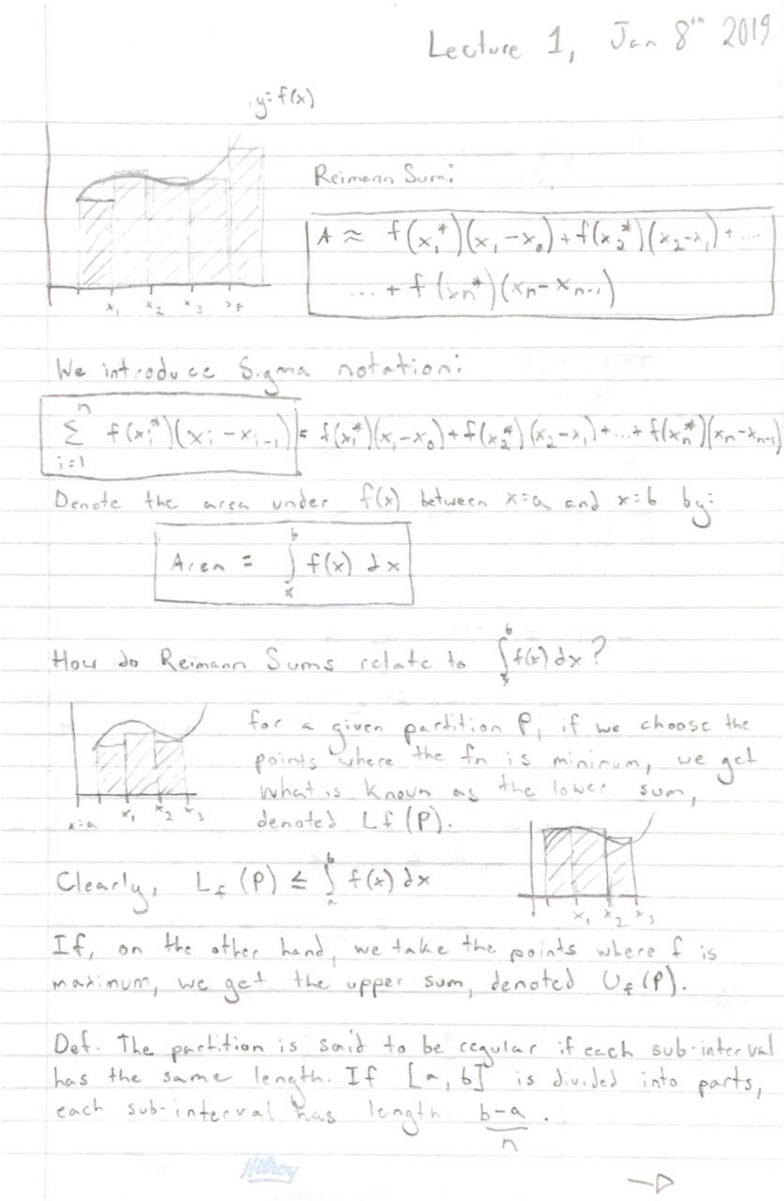 Lecture 1, Jan 8th 2019
y=f(x)
Reimann Sum:
A ≈ f(x₁*)(x₁-x₀)+f(x₂*)(x₂-x₁)+....
...+f(xn*)(xn-xn-1)
x₁ x₂ x₃ x₄
We introduce Sigma notation:
n
Σ f(xi*)(xi-xi-1) = f(x₁*)(x₁-x₀)+f(x₂*)(x₂-x₁)+...+f(xn*)(xn-xn-1)
i=1
Denote the area under f(x) between x=a and x=b by:
b
Area = ∫ f(x) dx
x
How do Reimann Sums relate to ∫ᵇ f(x) dx?
for a given partition P, if we choose the
points where the fn is minimum, we get
what is known as the lower sum,
denoted Lf(P).
x=a x₁ x₂ x₃
Clearly, Lf(P) ≤ ∫ₐᵇ f(x) dx
x₁ x₂ x₃
If, on the other hand, we take the points where f is
maximum, we get the upper sum, denoted Uf(P).
Def. The partition is said to be regular if each sub-interval
has the same length. If [a, b] is divided into parts,
each sub-interval has length b-a .
n
Hilroy